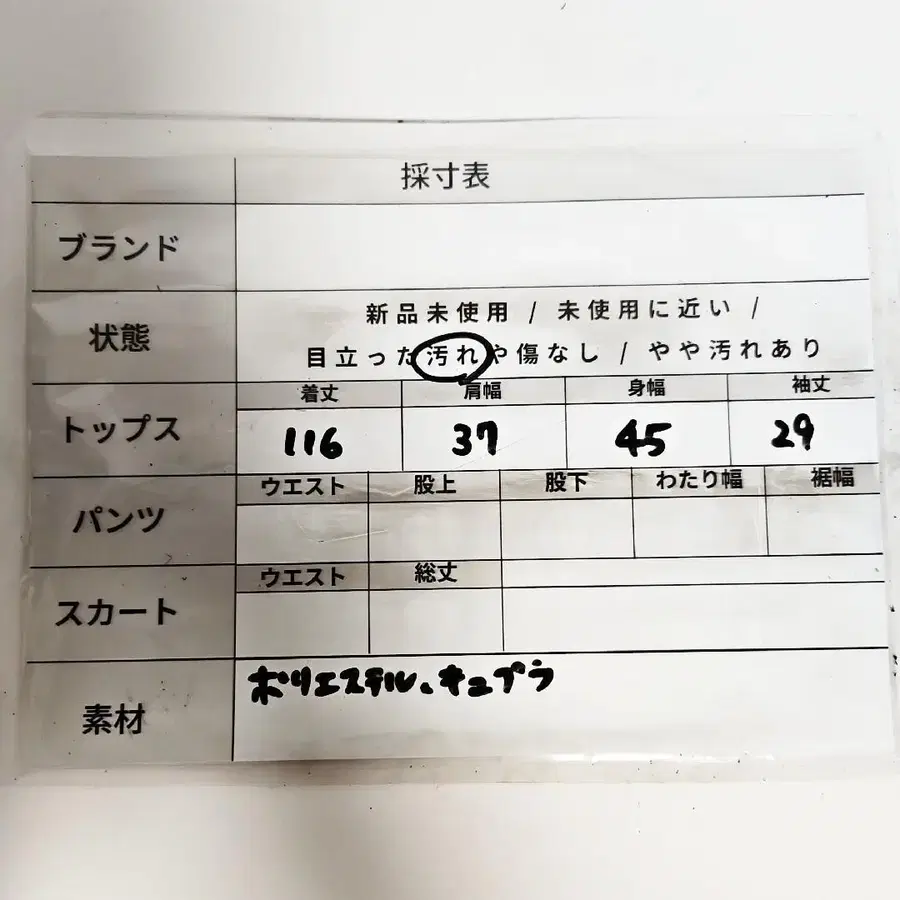 採寸表
ブランド
状態
新品未使用 / 未使用に近い /
目立った汚れや傷なし / やや汚れあり
トップス
着丈 肩幅 身幅 袖丈
116 37 45 29
パンツ
ウエスト 股上 股下 わたり幅 裾幅
スカート
ウエスト 総丈
素材
ポリエステル、キュプラ